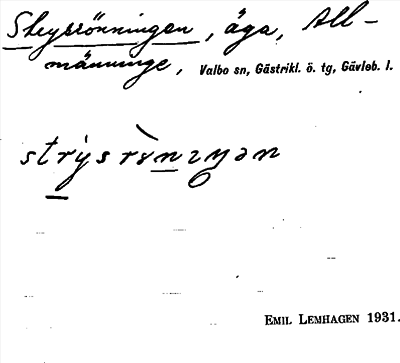 Skeysrönningen, äga, All-
männinge, Valbo sn, Gästrikl. ö. tg, Gävleb. l.
EMIL LEMHAGEN 1931.